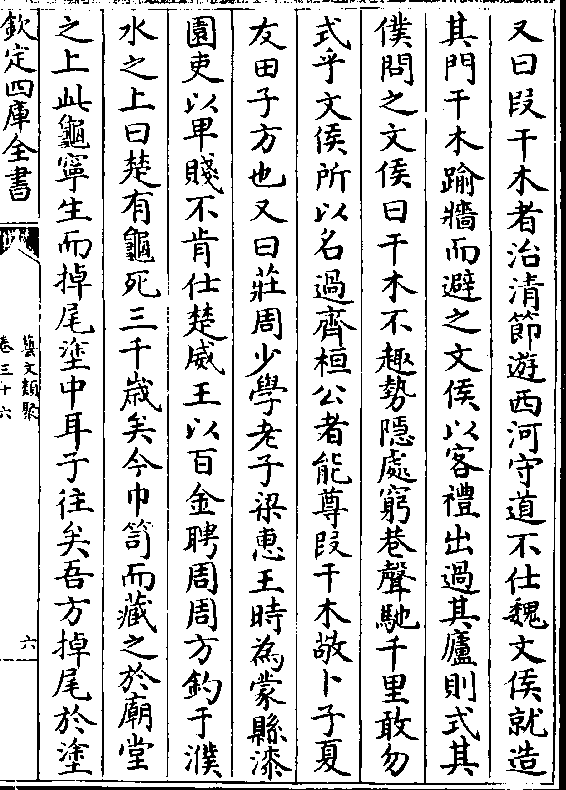 又曰段干木者治清節遊西河守道不仕魏文侯就造
其門干木踰牆而避之文侯以客禮出過其廬則式其
僕問之文侯曰干木不趣勢隱處窮巷聲馳千里敢勿
式乎文侯所以名過齊桓公者能尊段干木敬卜子夏
友田子方也又曰莊周少學老子梁惠王時為蒙縣漆
園吏以卑賤不肯仕楚威王以百金聘周周方釣于濮
水之上曰楚有龜死三千歲矣今巾笥而藏之於廟堂
之上此龜寧生而掉尾塗中耳子往矣吾方掉尾於塗
欽定四庫全書
藝文類聚
卷三十六
六